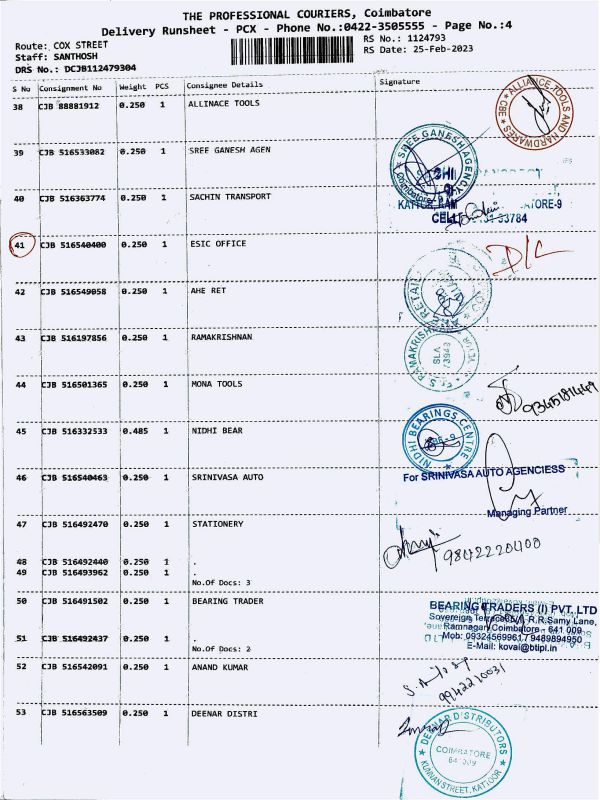 THE PROFESSIONAL COURIERS, Coimbatore
Delivery Runsheet - PCX - Phone No.:0422-3505555 - Page No.:4
Route: COX STREET
RS No.: 1124793
Staff: SANTHOSH
RS Date: 25-Feb-2023
DRS No.: DCJB112479304
S No Consignment No Weight PCS Consignee Details Signature
38 CJB 88881912 0.250 1 ALLINACE TOOLS
ALLIANCE TOOLS AND HARDWARES CBE
39 CJB 516533082 0.250 1 SREE GANESH AGEN
SREE GANESH AGENCY Coimbatore
40 CJB 516363774 0.250 1 SACHIN TRANSPORT
41 CJB 516540400 0.250 1 ESIC OFFICE
D/C
42 CJB 516549058 0.250 1 AHE RET
43 CJB 516197856 0.250 1 RAMAKRISHNAN
44 CJB 516501365 0.250 1 MONA TOOLS
45 CJB 516332533 0.485 1 NIDHI BEAR
NIDHI BEARINGS CENTRE
46 CJB 516540463 0.250 1 SRINIVASA AUTO
For SRINIVASA AUTO AGENCIESS
Managing Partner
47 CJB 516492470 0.250 1 STATIONERY
9842220400
48 CJB 516492440 0.250 1 .
49 CJB 516493962 0.250 1 .
No.Of Docs: 3
50 CJB 516491502 0.250 1 BEARING TRADER
BEARING TRADERS (I) PVT. LTD
Sovereign Terrace R.R.Samy Lane,
Ramnagar, Coimbatore - 641 009
Mob: 09324569961 / 9489894950
E-Mail: kovai@btipl.in
51 CJB 516492437 0.250 1 .
No.Of Docs: 2
52 CJB 516542091 0.250 1 ANAND KUMAR
9942210031
53 CJB 516563509 0.250 1 DEENAR DISTRI
DEENAR DISTRIBUTORS
COIMBATORE
KUNNAN STREET, KATTOOR